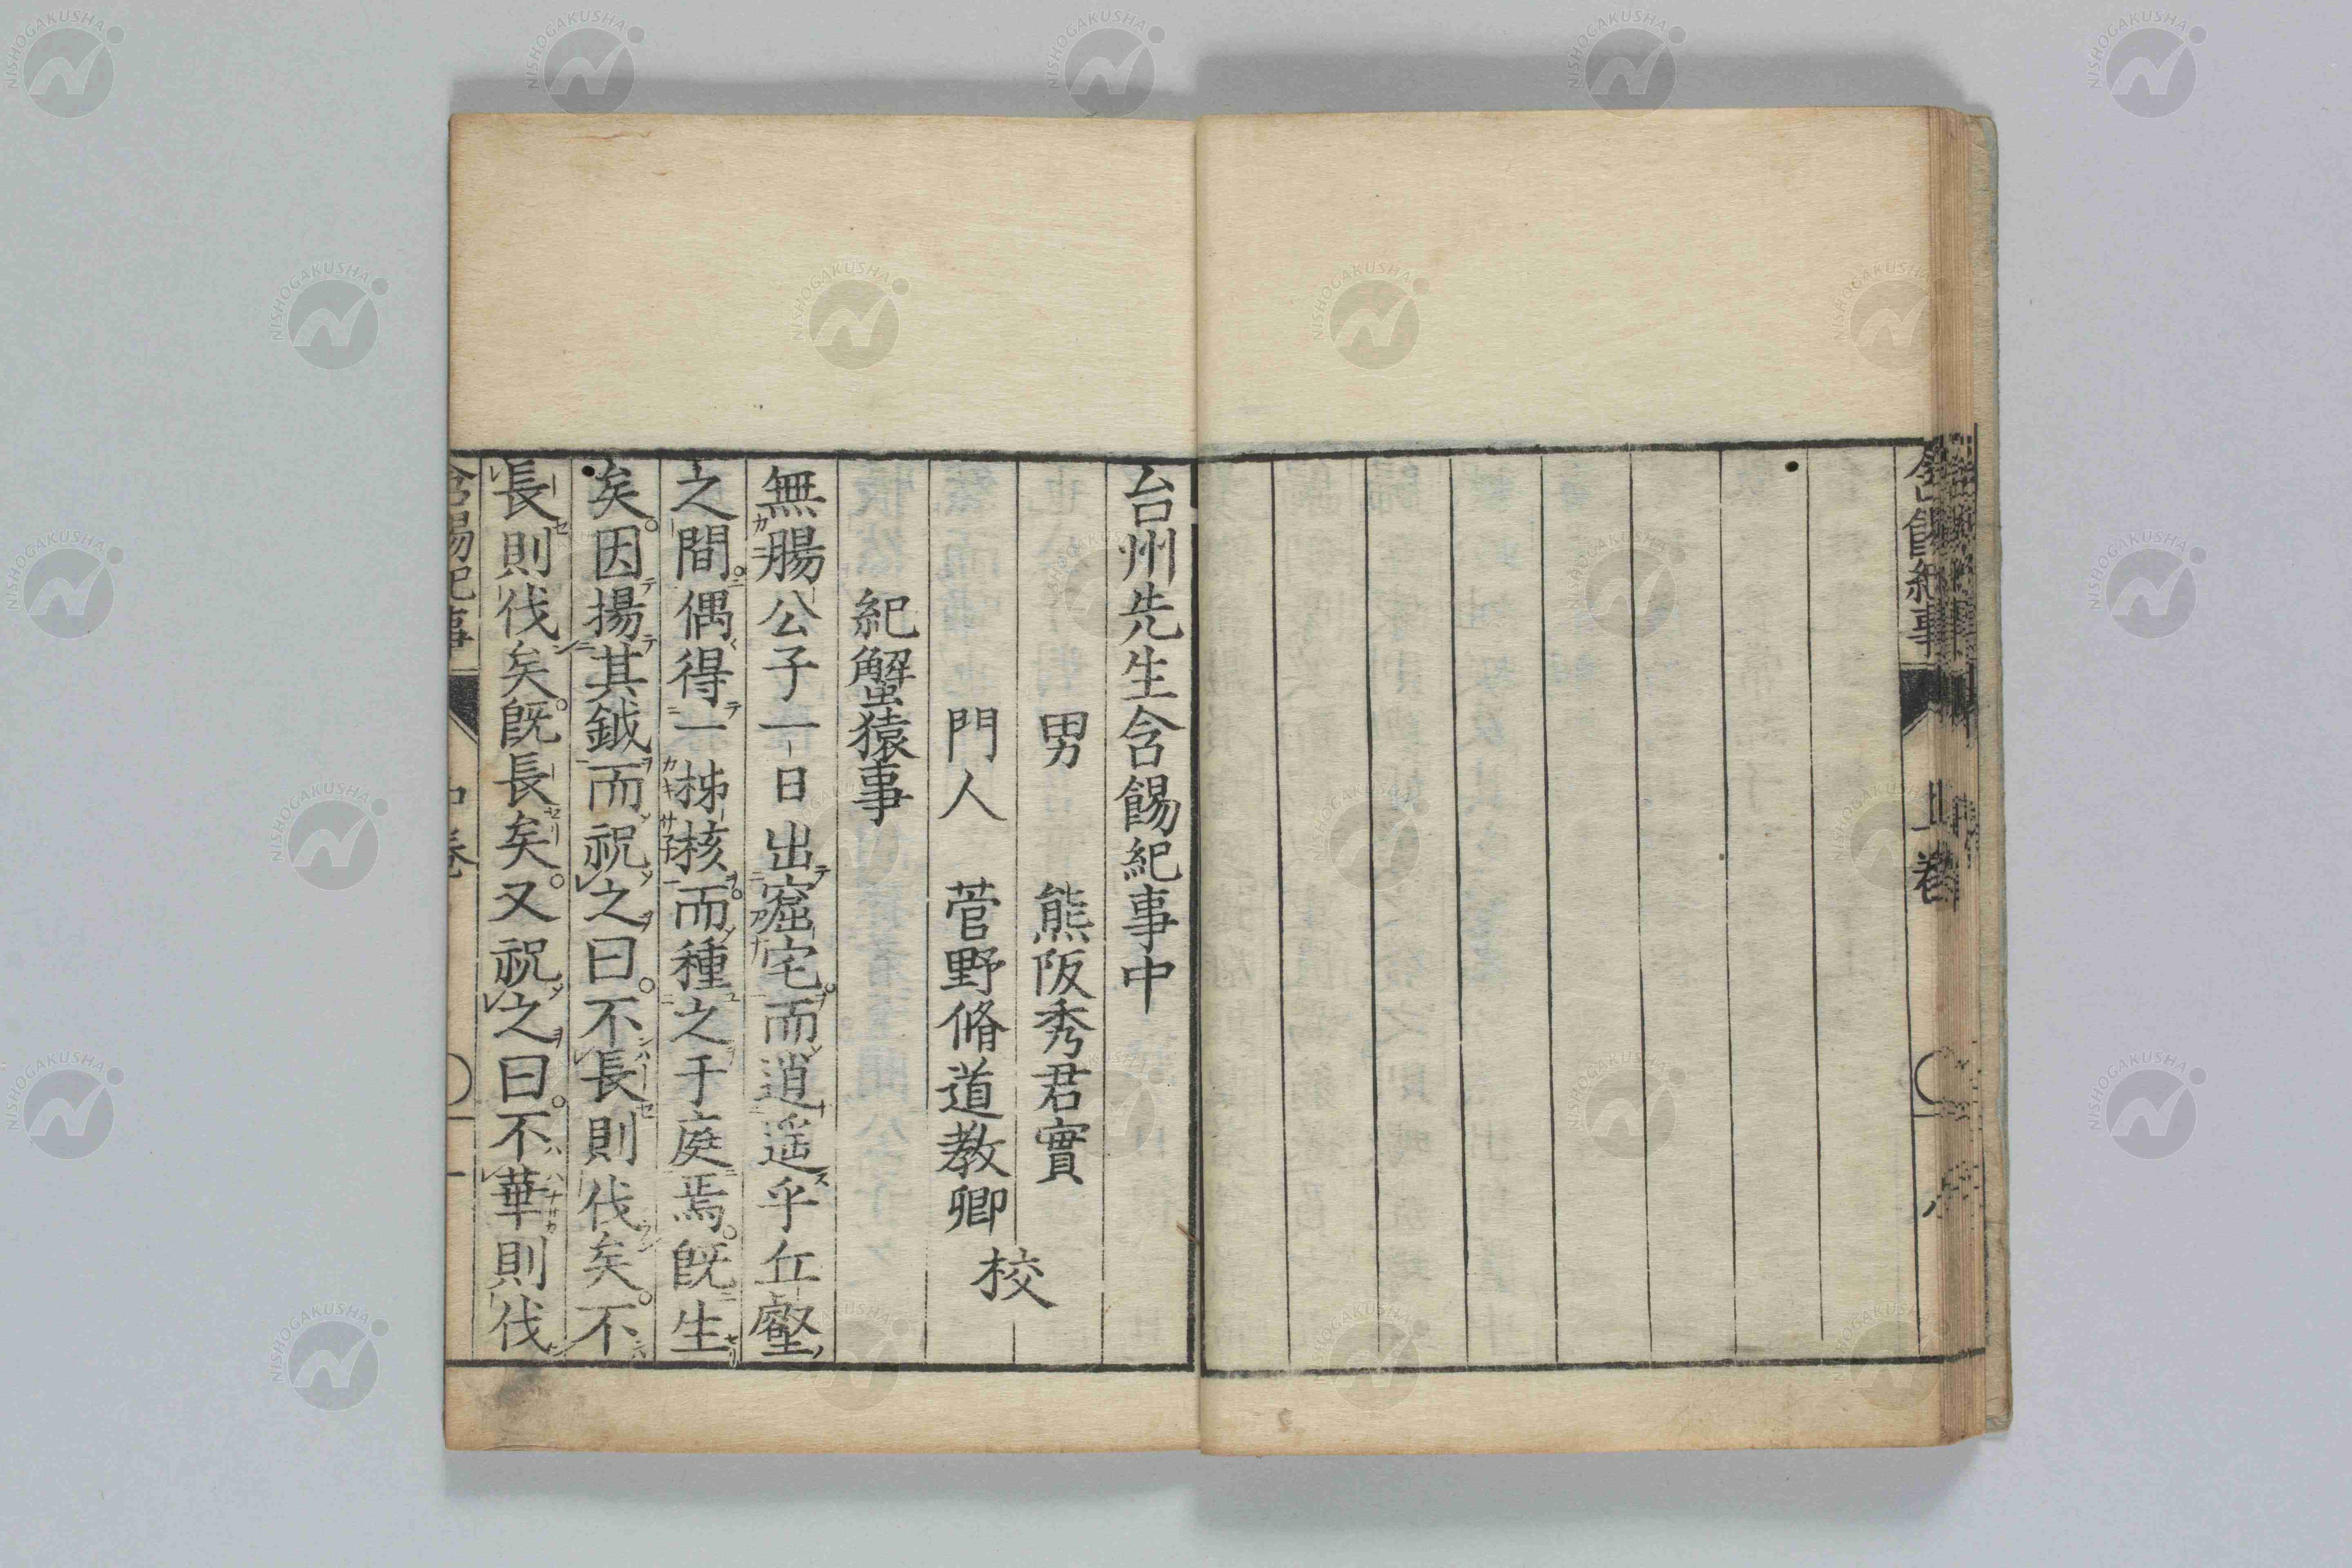 含餳紀事
上卷
八
台州先生含餳紀事中
男　熊阪秀君實
門人　菅野脩道教卿
校
紀蟹猿事
無腸公子一日出窟宅而逍遥乎丘壑
之間偶得一柹核而種之于庭焉既生
矣因揚其鉞而祝之曰不長則伐矣不
長則伐矣既長矣又祝之曰不華則伐
含餳紀事
中卷
一
NISHOGAKUSHA